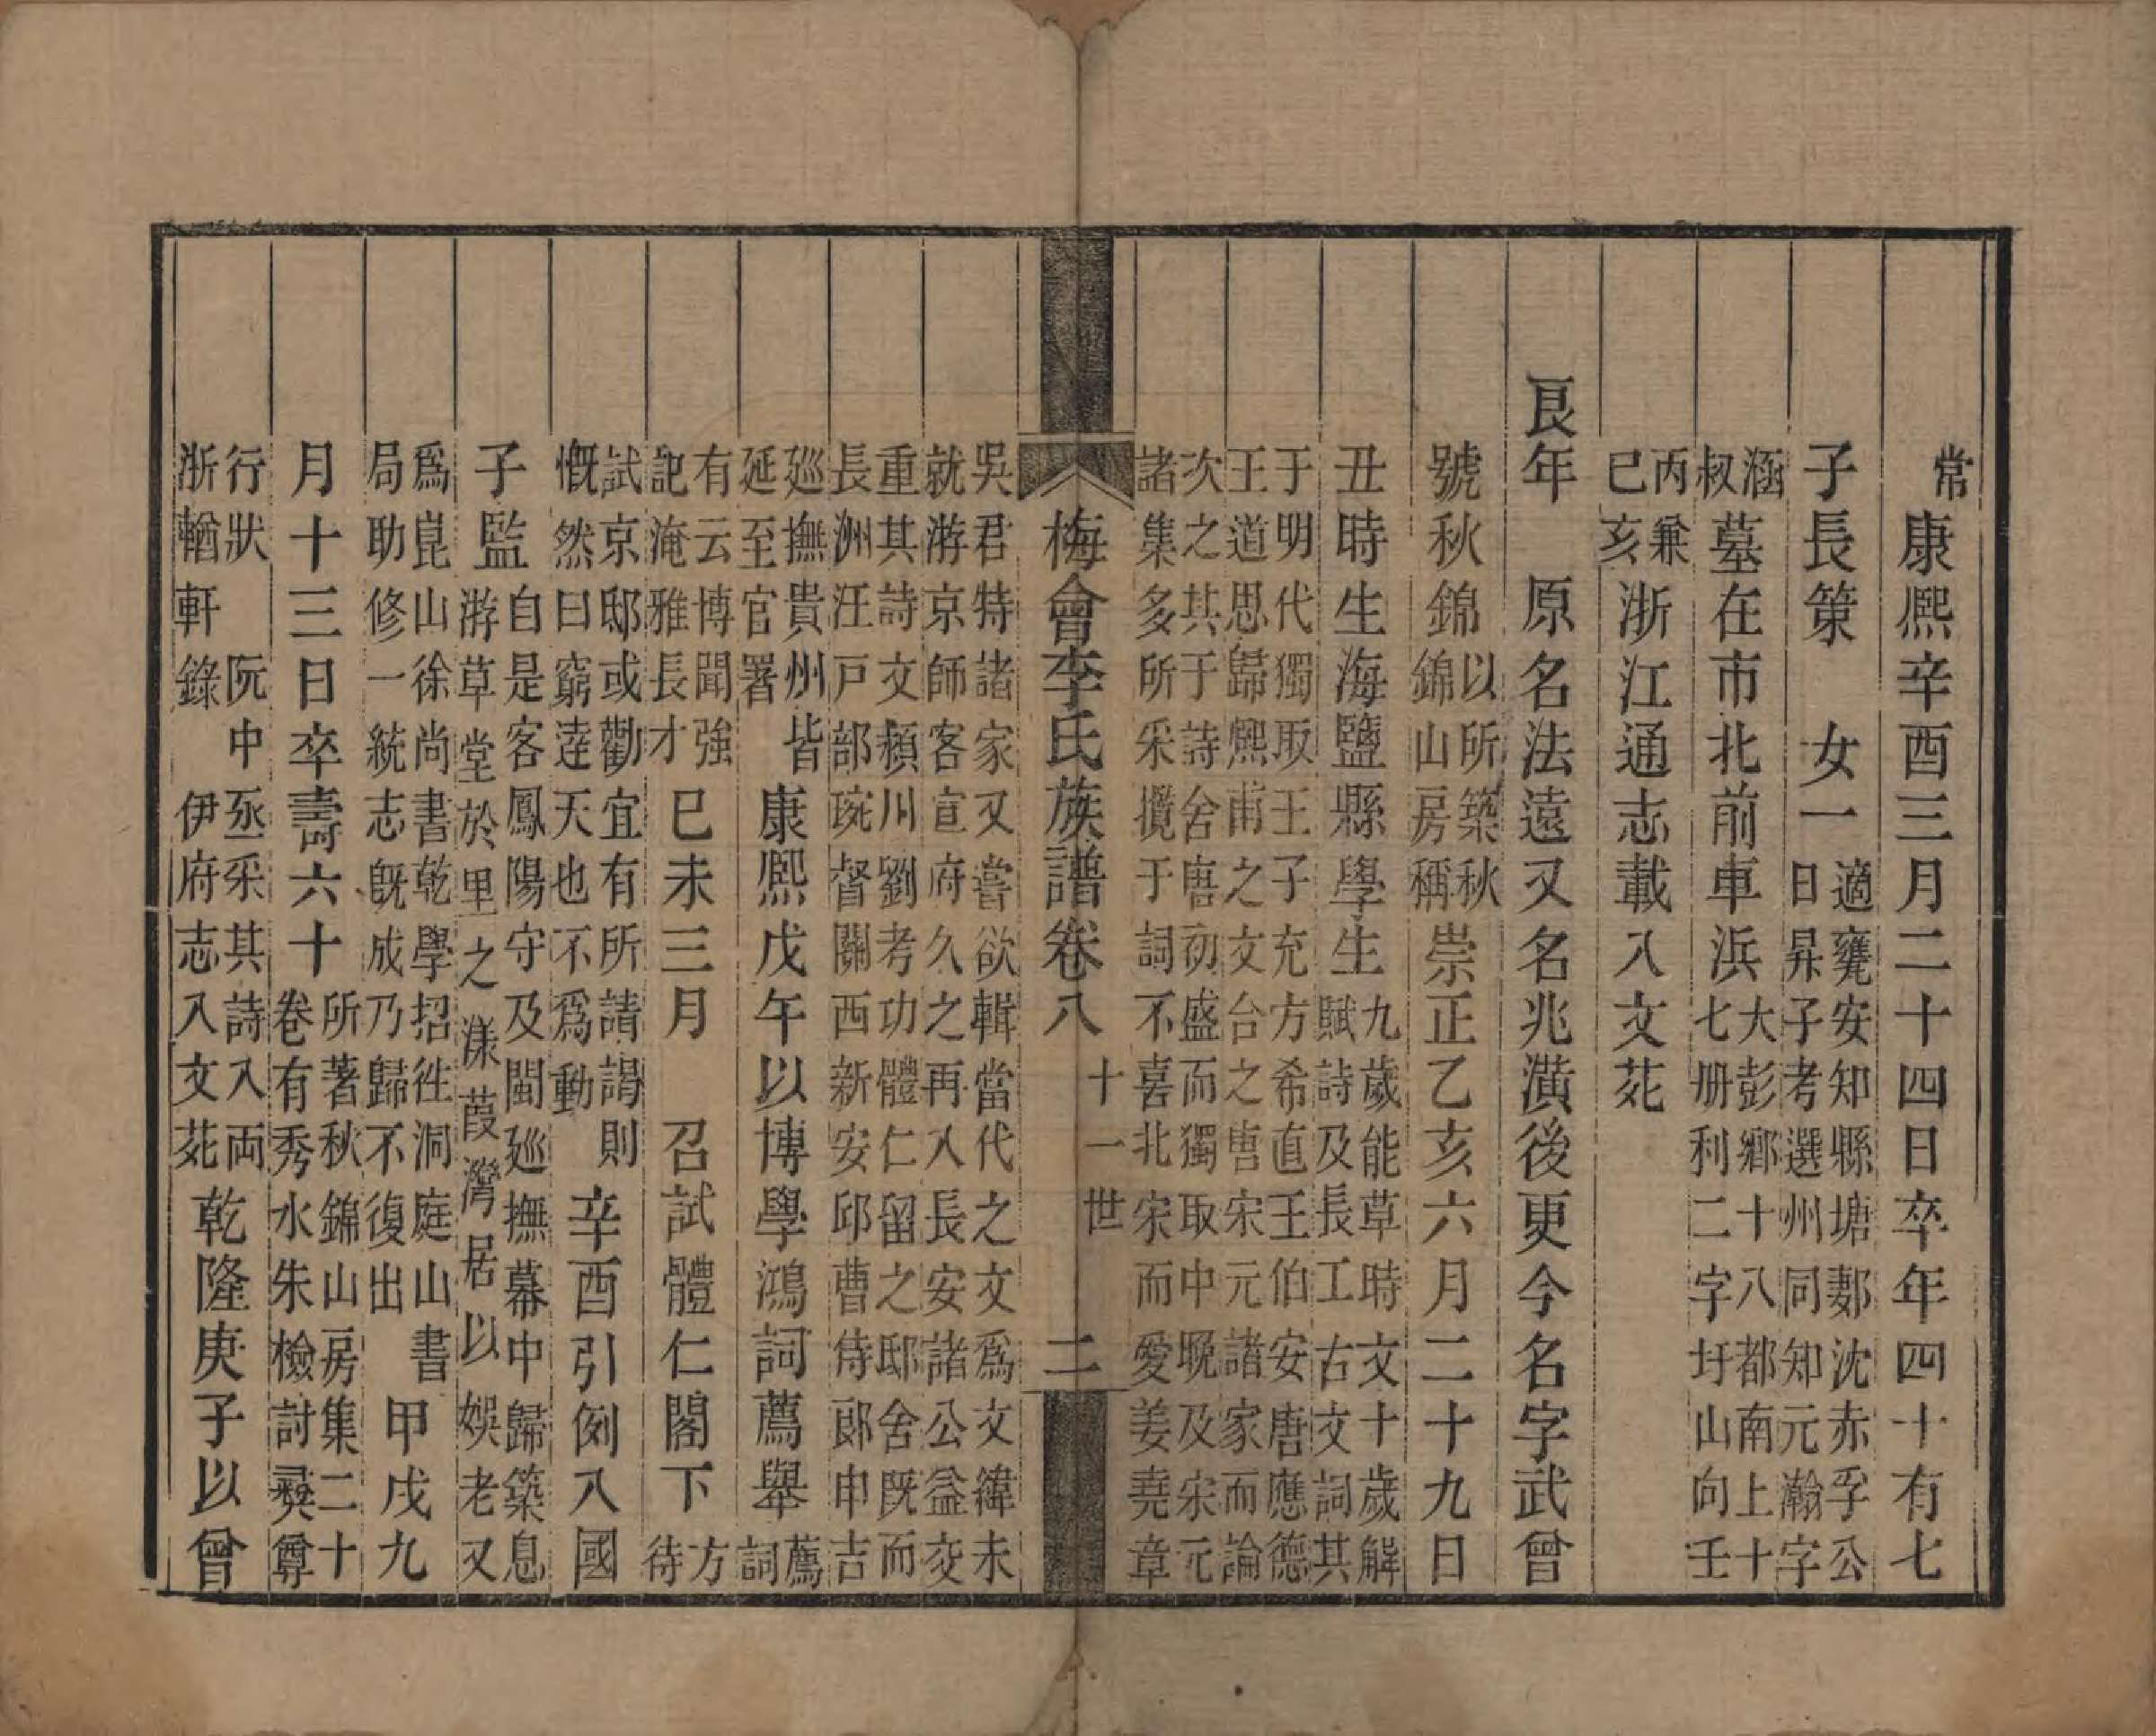 常康熙辛酉三月二十四日卒年四十有七
子長策　女一適甕安知縣塘鄴沈赤孚公
日昇子考選州同知元瀚字
涵叔墓在市北前車浜大彭鄉十八都南上十
七册利二字圩山向壬
丙兼巳亥浙江通志載入文苑
良年　原名法遠又名兆潢後更今名字武曾
號秋錦以所築秋錦山房稱崇正乙亥六月二十九日
丑時生海鹽縣學生九歲能草時文十歲解
賦詩及長工古文詞其
于明代獨取王子充方希直王伯安唐應德
王道思歸熙甫之文台之唐宋元諸家而論
次之其于詩舍唐初盛而獨取中晚及宋元
諸集多所采攬于詞不喜北宋而愛姜堯章
梅會李氏族譜卷八　十一世　二
吳君特諸家又嘗欲輯當代之文為文緯未
就游京師客宣府久之再入長安諸公益交
重其詩文潁川劉考功體仁留之邸舍既而
長洲汪戶部琬督關西新安邱曹侍郎申吉
巡撫貴州皆延至官署康熙戊午以博學鴻詞薦舉薦
詞
有云博聞強記淹雅長才巳未三月　召試體仁閣下方
待
試京邸或勸宜有所請謁則
慨然曰窮達天也不為動辛酉引例入國
子監自是客鳳陽守及閩巡撫幕中歸築息
游草堂於里之漾葭灣居以娛老又
為崑山徐尚書乾學招往洞庭山書
局助修一統志旣成乃歸不復出甲戌九
月十三日卒壽六十所著秋錦山房集二十
卷有秀水朱檢討彝尊
行狀　阮中丞采其詩入兩
浙輶軒錄　伊府志入文苑乾隆庚子以曾